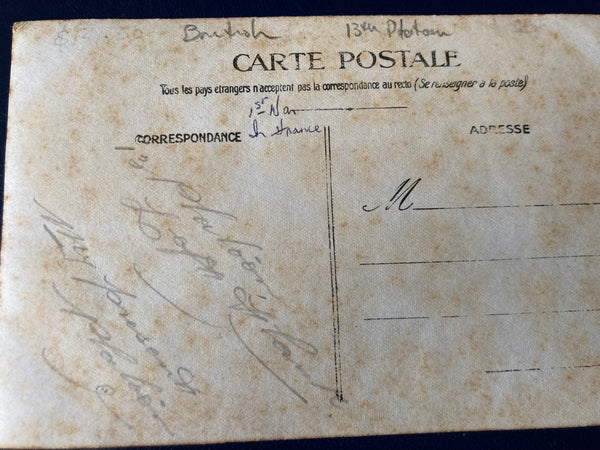 £12.50 British 13th Platoon
CARTE POSTALE
Tous les pays étrangers n'acceptent pas la correspondance au recto (Se renseigner à la poste)
1st War
In France
CORRESPONDANCE
ADRESSE
M
platoon
present
platoon